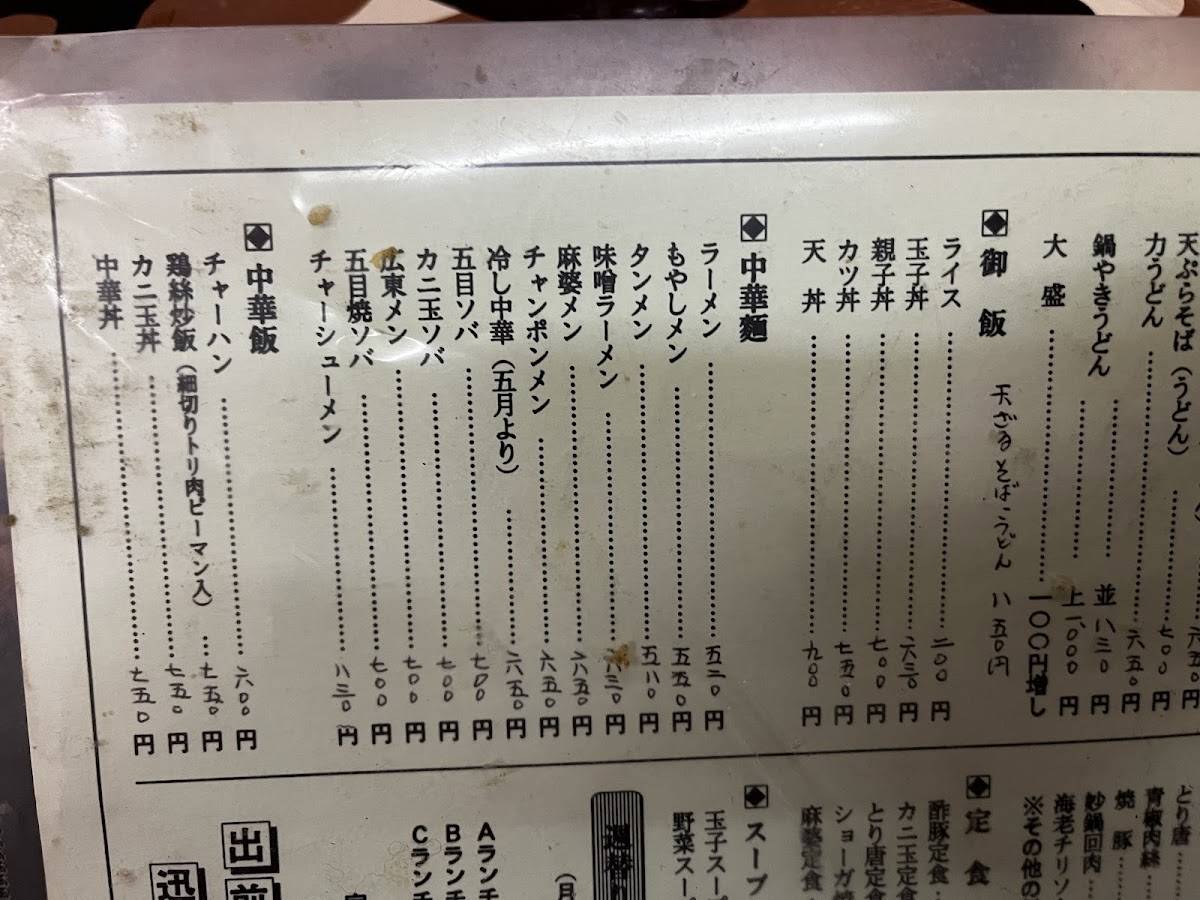 天ぷらそば（うどん）
力うどん……六五〇円
鍋やきうどん……並 八三〇円
上一、〇〇〇円
大盛……一〇〇円増し
天ざるそば・うどん 八五〇円
◆御飯
ライス……二〇〇円
玉子丼……六三〇円
親子丼……七〇〇円
カツ丼……七五〇円
天丼……九〇〇円
◆中華麺
ラーメン……五三〇円
もやしメン……五五〇円
タンメン……五八〇円
味噌ラーメン……六三〇円
麻婆メン……六五〇円
チャンポンメン……六五〇円
冷し中華（五月より）……六五〇円
五目ソバ……七〇〇円
カニ玉ソバ……七〇〇円
広東メン……七〇〇円
五目焼ソバ……七〇〇円
チャーシューメン……八三〇円
◆中華飯
チャーハン……六〇〇円
鶏絲炒飯（細切りトリ肉ピーマン入）……七五〇円
カニ玉丼……七五〇円
中華丼……七五〇円
どり唐
青椒肉絲
焼豚
炒鍋回肉
海老チリソ
※その他の
◆定食
酢豚定食
カニ玉定食
とり唐定食
ショーガ焼
麻婆定食
◆スープ
玉子スープ
野菜スープ
週替り
（月
Aランチ
Bランチ
Cランチ
出前
迅